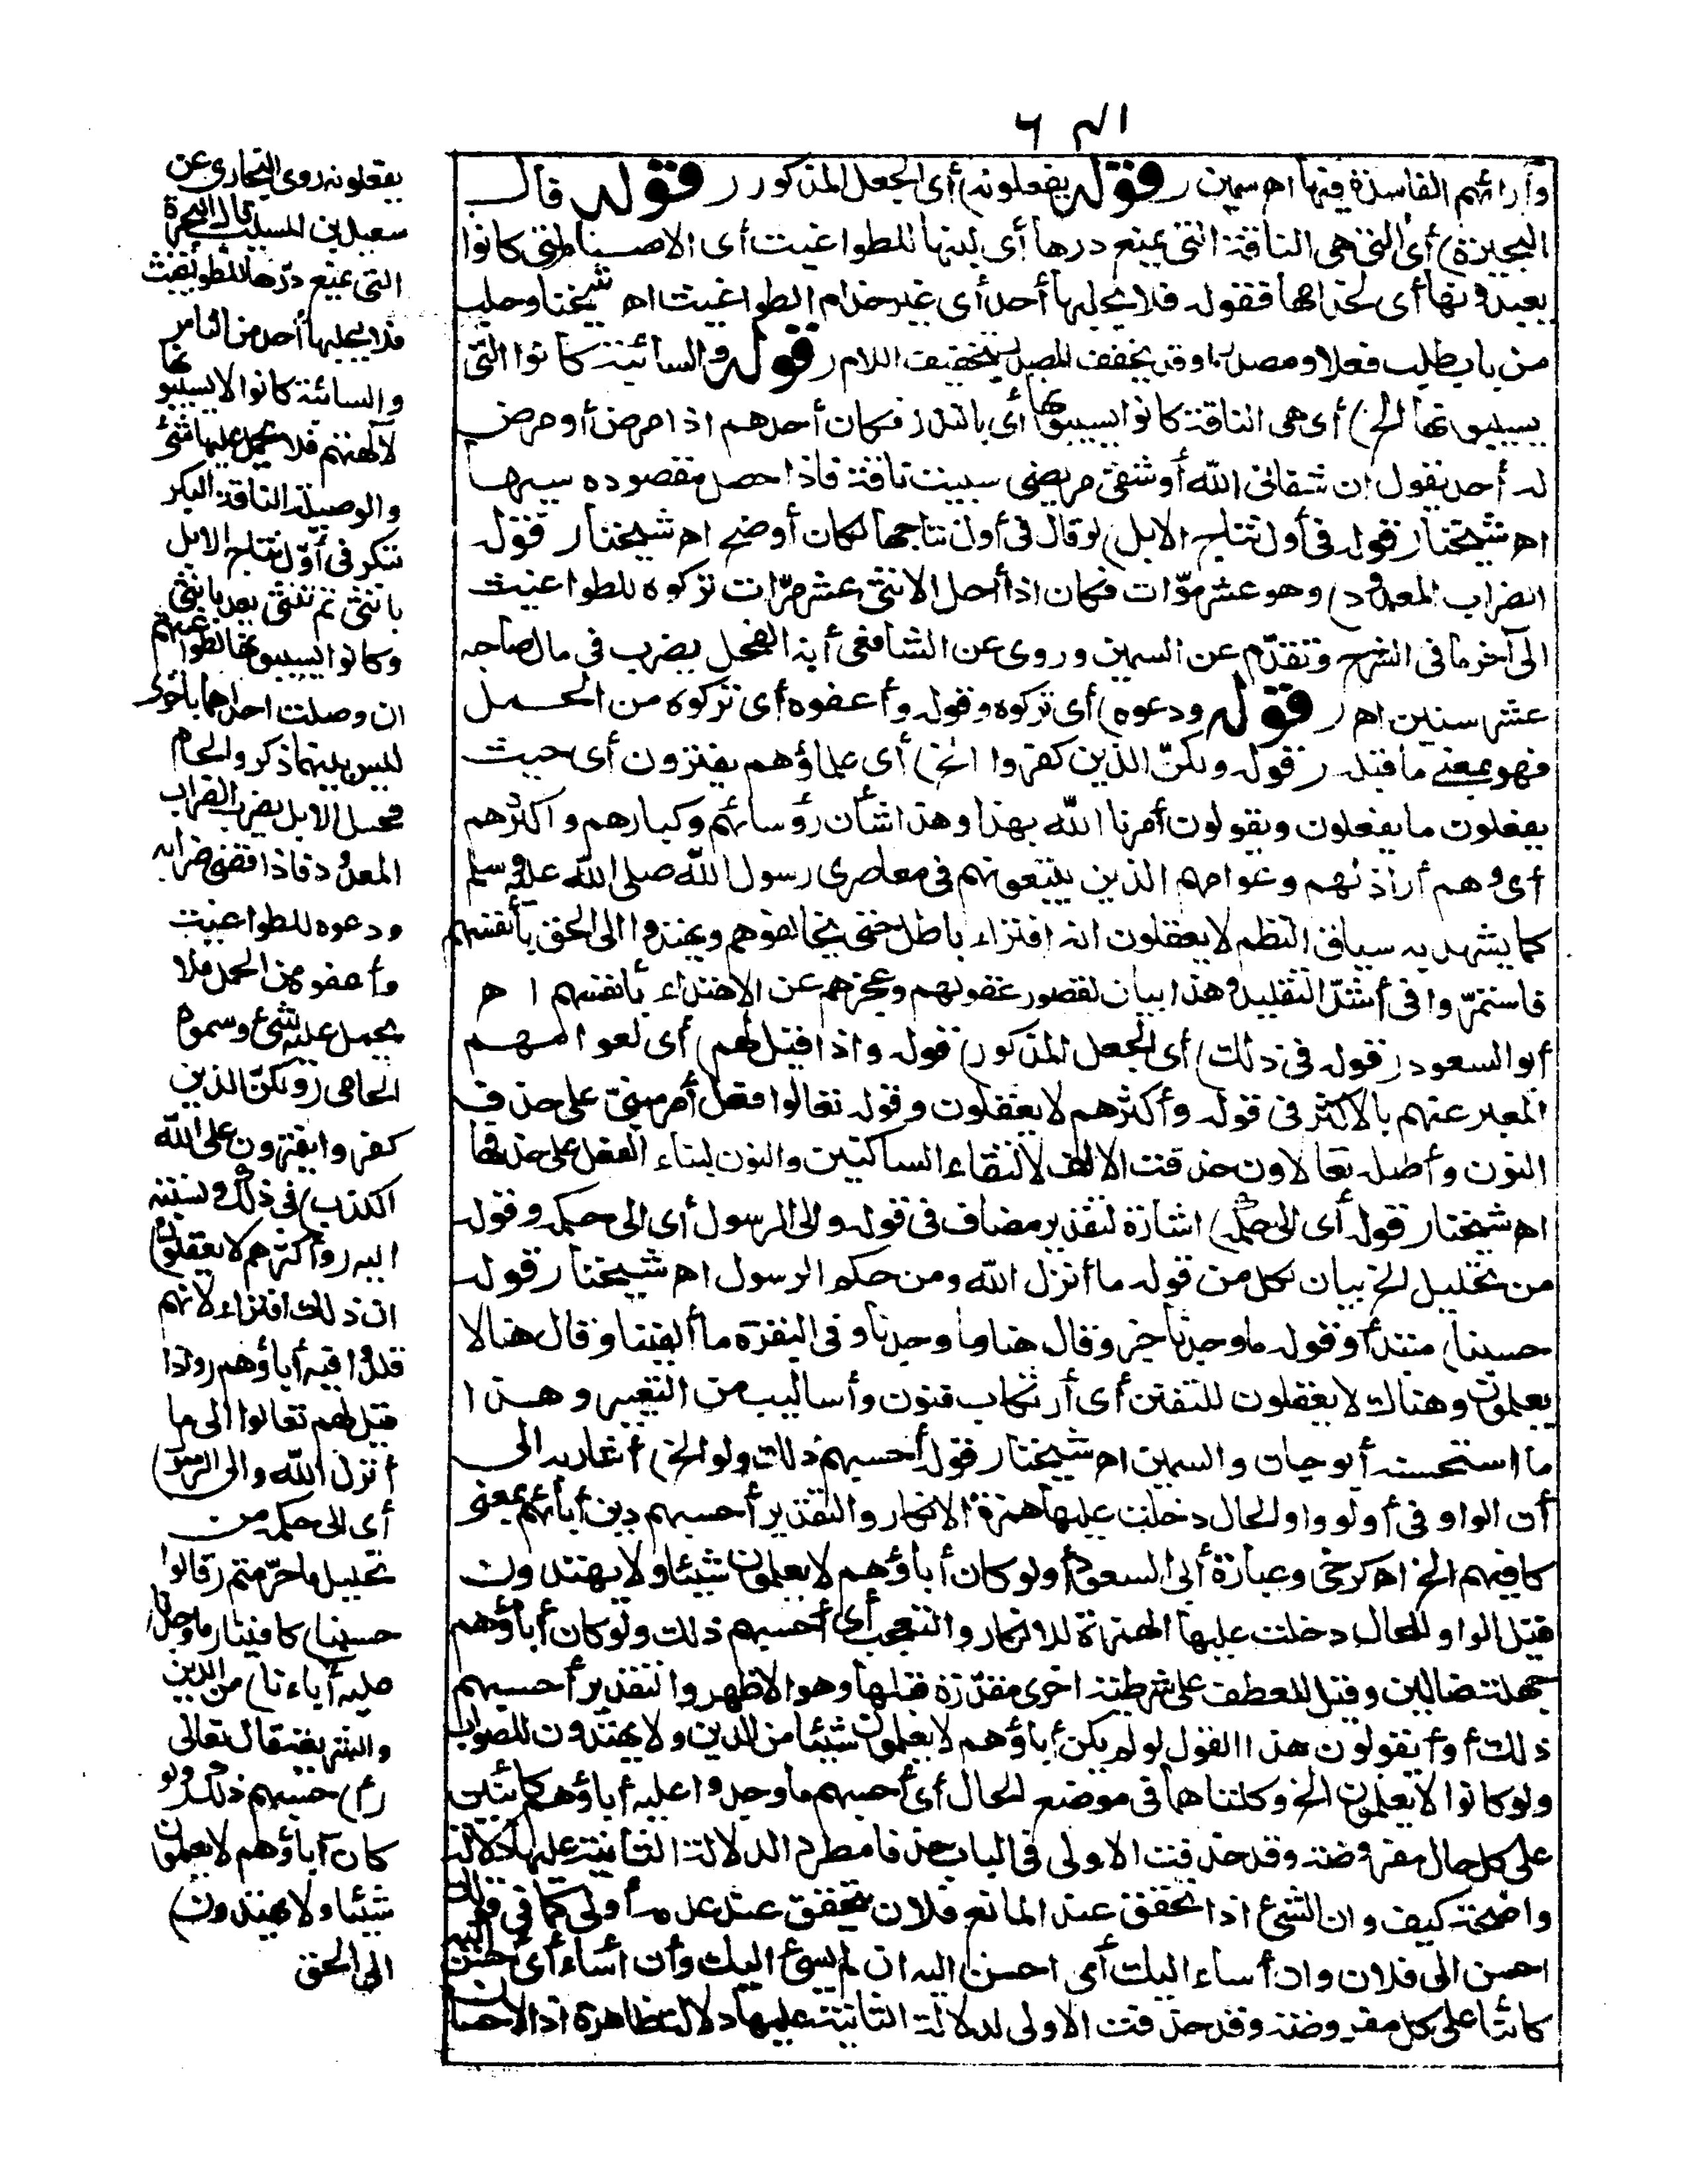 وآرائهم الفاسدة فيها اه سمين (قوله يفعلونه) أى الجعل المذكور (قوله قال
البحيرة) أى التى هى الناقة التى يمنع درها أى لبنها للطواغيت أى الاصنام التى كانوا
يعبدونها أى لخدامها فقوله فلا يحلبها أحد أى غير خدام الطواغيت اه شيخنا وحلب
من باب طلب فعلا ومصدرا وقد يخفف المصدر بتخفيف اللام (قوله والسائبة كانوا التى
يسيبونها الخ) أى هى الناقة كانوا يسيبونها أى بالنذر فكان أحدهم اذا مرض أو مرض
له أحد يقول ان شفانى الله أو شفى مريضى سيبت ناقة فاذا حصل مقصوده سيبها
اه شيخنا (قوله فى أول نتاج الابل) لو قال فى أول نتاجها لكان أوضح اه شيخنا (قوله
الضراب المعدود) وهو عشر مرّات فكان اذا أحبل الانثى عشر مرّات تركوه للطواغيت
الى آخر ما فى الشرح وتقدّم عن السمين وروى عن الشافعى أنه الفحل يضرب فى مال صاحبه
عشر سنين اه (قوله ودعوه) أى تركوه وقوله وأعفوه أى تركوه من الحمل
فهو بمعنى ما قبله (قوله ولكنّ الذين كفروا الخ) أى علماؤهم يفترون أى حيث
يفعلون ما يفعلون ويقولون أمرنا الله بهذا وهذا شأن رؤسائهم وكبارهم وأكثرهم
أى وهم أراذلهم وعوامهم الذين يتبعونهم فى معاصرى رسول الله صلى الله عليه وسلم
كما يشهد به سياق النظم لا يعقلون انه افتراء باطل حتى يخالفوهم ويهتدوا الى الحق بأنفسهم
فاستمرّوا فى أشدّ التقليد وهذا بيان لقصور عقولهم وعجزهم عن الاهتداء بأنفسهم اه
أبو السعود (قوله فى ذلك) أى الجعل المذكور (قوله واذا قيل لهم) أى لعوامهم
المعبر عنهم بالاكثر فى قوله وأكثرهم لا يعقلون وقوله تعالوا فعل أمر مبنىّ على حذف
النون وأصله تعالاون حذفت الالف لالتقاء الساكنين والنون لبناء الفعل على حذفها
اه شيخنا (قوله أى الى حكمه) اشارة لتقدير مضاف فى قوله والى الرسول أى الى حكمه وقوله
من تحليل الخ بيان لكل من قوله ما أنزل الله ومن حكم الرسول اه شيخنا (قوله
حسبنا) مبتدأ وقوله ما وجدنا خبر وقال هنا ما وجدنا وفى البقرة ما ألفينا وقال هنا لا
يعلمون وهناك لا يعقلون للتفنن أى ارتكاب فنون وأساليب من التعبير وهذا
ما استحسنه أبو حيان والسمين اه شيخنا (قوله أحسبهم ذلك ولو الخ) أشار به الى
أن الواو فى أولو واو الحال دخلت عليها همزة الانكار والتقدير أحسبهم دين أبائهم بمعنى
كافيهم الخ اه كرخى وعبارة أبى السعود أولو كان أباؤهم لا يعلمون شيئا ولا يهتدون
قيل الواو للحال دخلت عليها الهمزة للانكار والتعجب أى أحسبهم ذلك ولو كان أباؤهم
جهلة ضالين وقيل للعطف على شرطية اخرى مقدّرة قبلها وهو الاظهر والتقدير أحسبهم
ذلك أو أيقولون هذا القول لو لم يكن أباؤهم لا يعلمون شيئا من الدين ولا يهتدون للصواب
ولو كانوا لا يعلمون الخ وكلتاهما فى موضع الحال أى أحسبهم ما وجدوا عليه أباؤهم كائنين
على كل حال مفروضة وقد حذفت الاولى فى الباب حذفا مطردا لدلالة الثانية عليها دلالة
واضحة كيف وان الشئ اذا تحقق عند المانع فلان يتحقق عند عدمه أولى كما فى قولك
احسن الى فلان وان أساء اليك أى احسن اليه ان لم يسئ اليك وأن أساء أى أحسن اليه
كائنا على كل مفروضة وقد حذفت الاولى لدلالة الثانية عليها دلالة ظاهرة اذ الاحسان
يفعلونه روى البخارى عن
سعيد بن المسيب قال البحيرة
التى يمنع درّها للطواغيت
فلا يحلبها أحد من الناس
والسائبة كانوا لا يسيبونها
لآلهتهم فلا يحمل عليها شئ
والوصيلة الناقة البكر
تبكر فى أوّل نتاج الابل
بانثى ثم تثنى بعد بانثى
وكانوا يسيبونها لطواغيتهم
ان وصلت احداهما باخرى
ليس بينهما ذكر والحام
فحل الابل يضرب الضراب
المعدود فاذا قضى ضرابه
ودعوه للطواغيت
وأعفوه من الحمل فلا
يحمل عليه شئ وسموه
الحامى (ولكنّ الذين
كفروا يفترون على الله
الكذب) فى ذلك ونسبته
اليه (وأكثرهم لا يعقلون)
ان ذلك افتراء لانهم
قلدوا فيه أباؤهم (واذا
قيل لهم تعالوا الى ما
أنزل الله والى الرسول)
أى الى حكمه من
تحليل ما حرّمتم (قالوا
حسبنا) كافينا (ما وجدنا
عليه أباءنا) من الدين
والشريعة قال تعالى
(أ) حسبهم ذلك (ولو
كان آباؤهم لا يعلمون
شيئا ولا يهتدون)
الى الحق